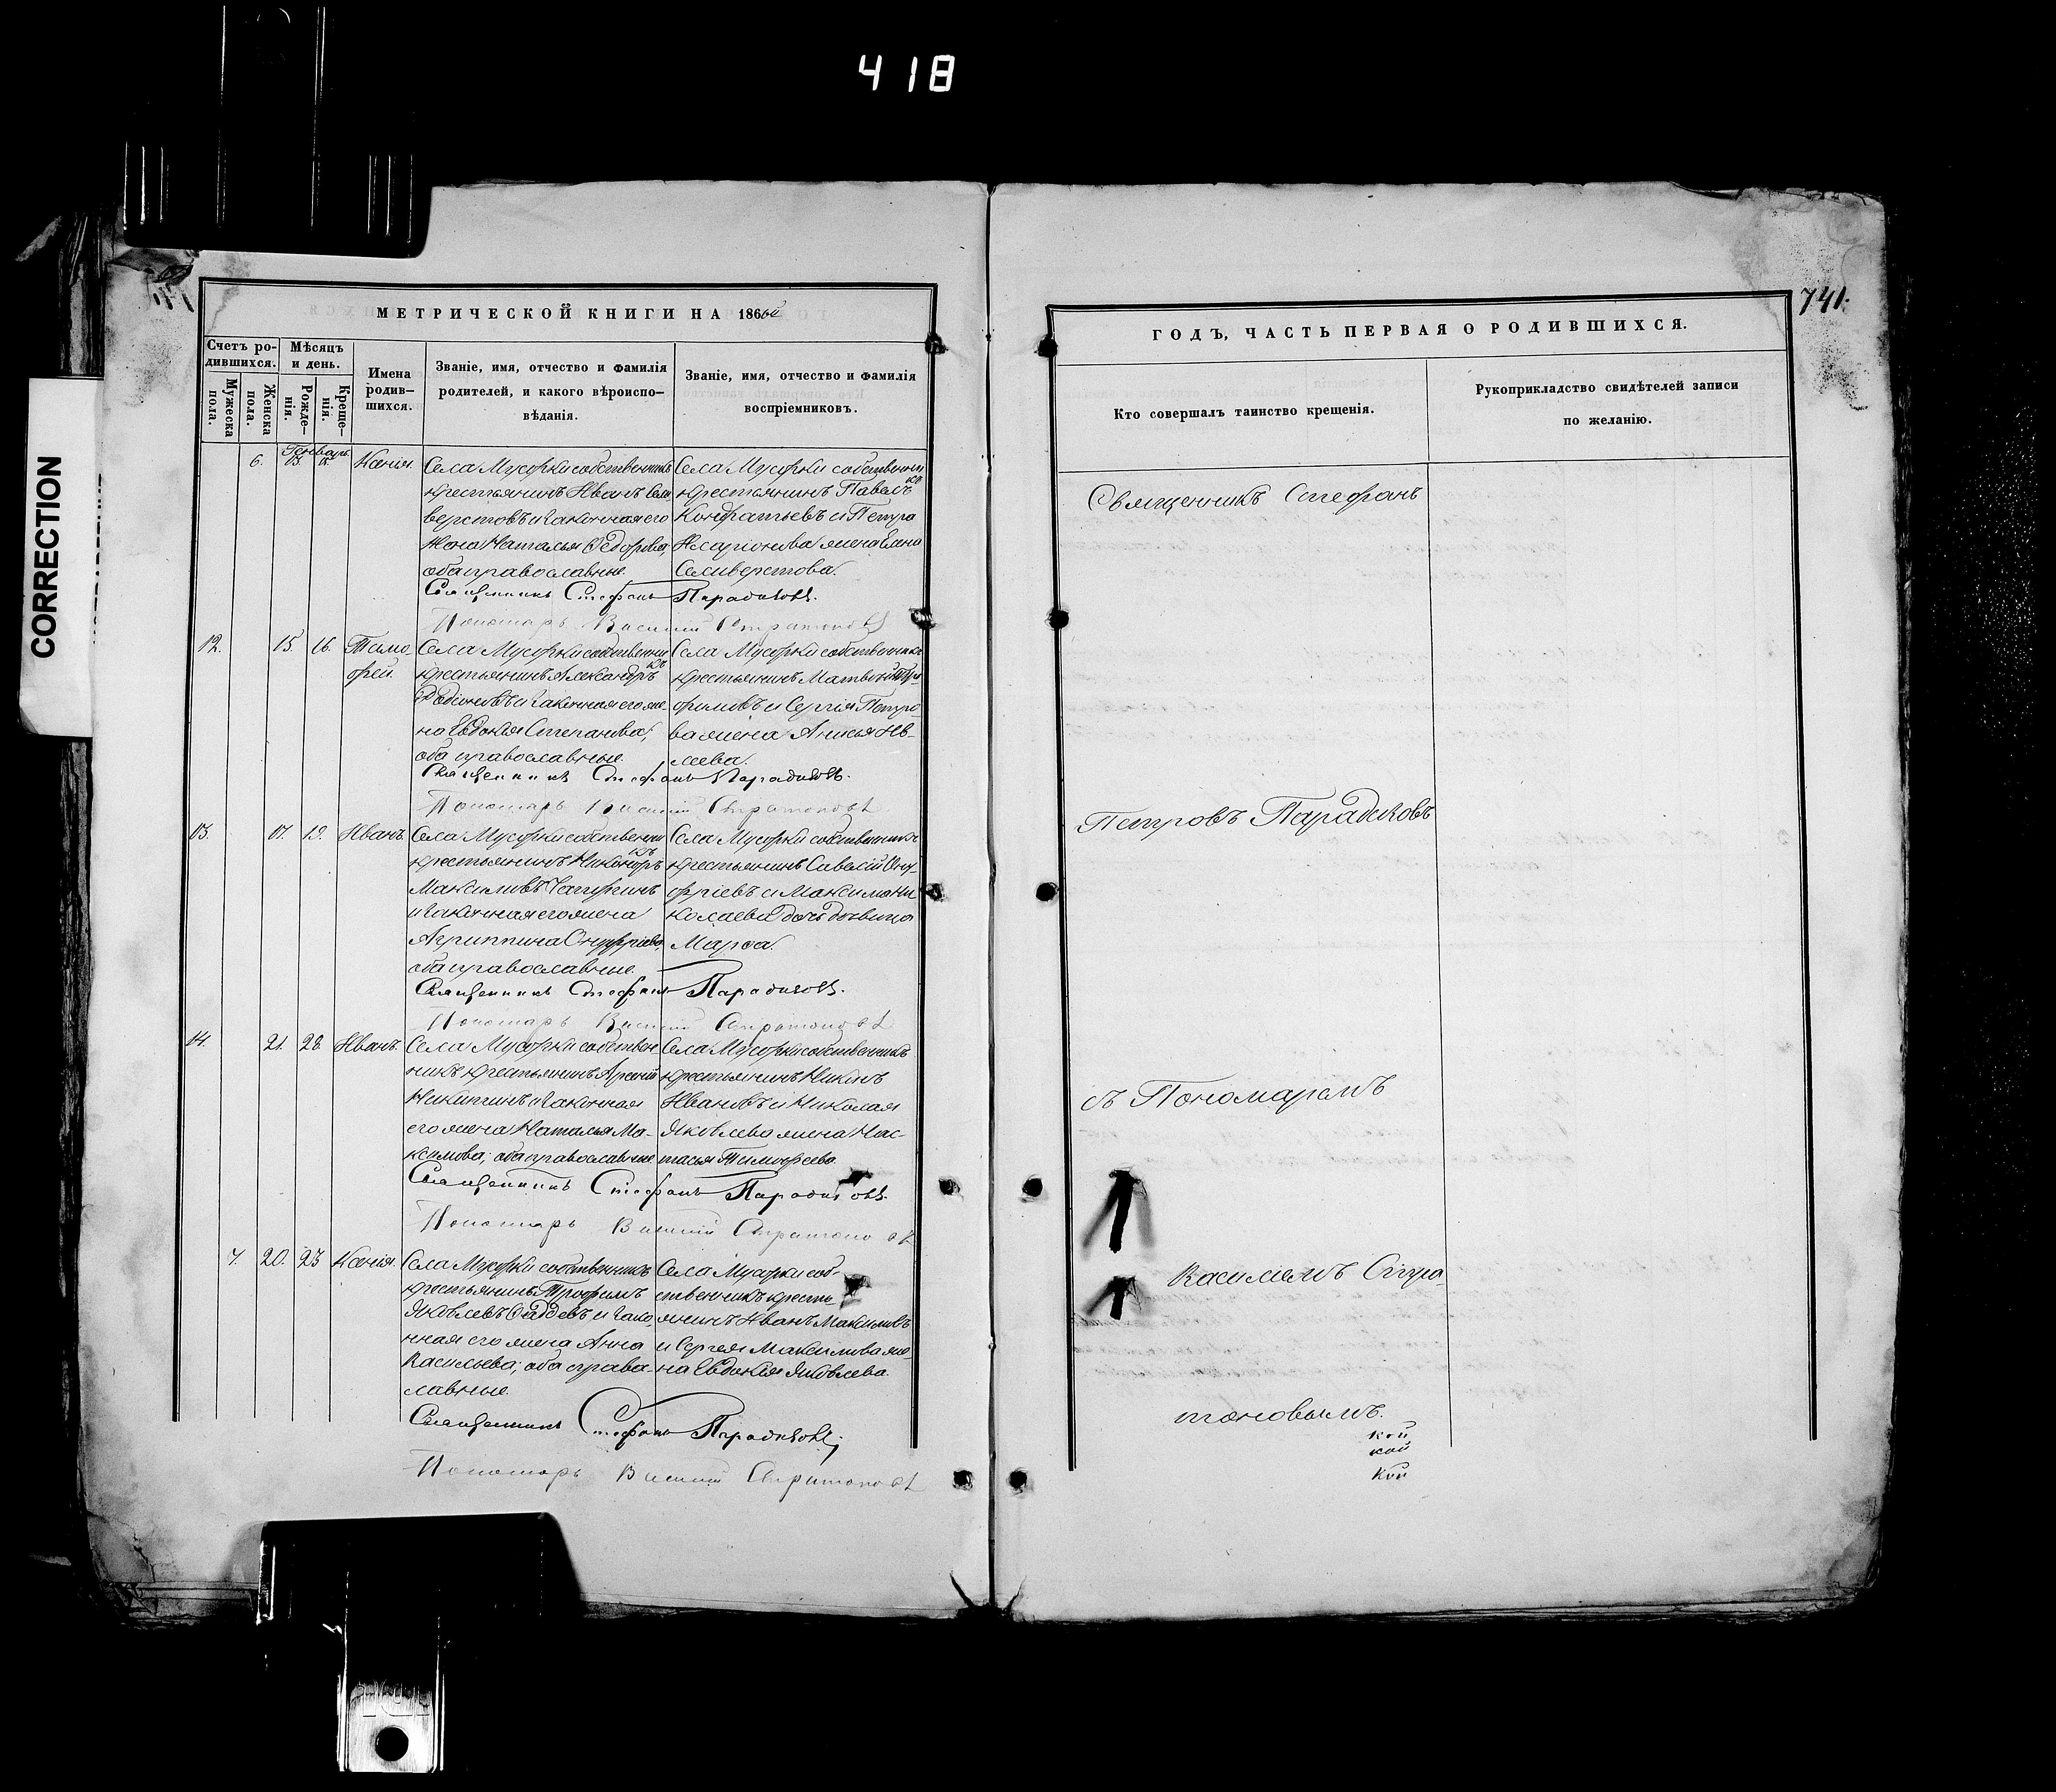 418
CORRECTION
МЕТРИЧЕСКОЙ КНИГИ НА 1866й
Счетъ ро-
дившихся.
Мѣсяцъ
и день.
Мужеска
пола.
Женска
пола.
Рожде-
нія.
Креще-
нія.
Имена
родив-
шихся.
Званіе, имя, отчество и фамилія
родителей, и какого вѣроиспо-
вѣданія.
Званіе, имя, отчество и фамилія
воспріемниковъ.
Генварь.
6.
Ксенія.
Села Мусорки собственникъ
крестьянинъ Иванъ Сели
верстовъ и законная его
жена Наталья Ѳедорова,
оба православные.
Села Мусорки собственни
къ
крестьянинъ Павелъ
Кондратьевъ и Петра
Иларіонова жена Елена
Селиверстова.
Священникъ Стефанъ Парадизовъ.
Пономарь Василій Стратоновъ
12.
15.
16.
Тимо
фей.
Села Мусорки собственни
къ
крестьянинъ Александръ
Родіоновъ и законная его же-
на Евдокія Степанова,
оба православные.
Села Мусорки собственникъ
крестьянинъ Матвей Тро
фимовъ и Сергія Петро-
ва жена Анисья Ив-
лева.
Священникъ Стефанъ Парадизовъ.
Пономарь Василій Стратоновъ
13.
17.
19.
Иванъ.
Села Мусорки собственни
къ
крестьянинъ Никоноръ
Максимовъ
и законная его жена
Агриппина Онуфріева,
оба православные.
Села Мусорки собственникъ
крестьянинъ Савелій Ону-
фріевъ и Максима Ни
колаева дочь дѣвица
Марѳа.
Священникъ Стефанъ Парадизовъ.
Пономарь Василій Стратоновъ
14.
21.
22.
Иванъ.
Села Мусорки собствен
никъ крестьянинъ Арсеній
Никитинъ и законная
его жена Наталья Ма-
ксимова; оба православные
Села Мусорки собственникъ
крестьянинъ
Ивановъ и Николая
Яковлева жена Нас-
тасья Тимофеева.
Священникъ Стефанъ Парадизовъ.
Пономарь Василій Стратоновъ
7.
20.
23
Ксенія.
Села Мусорки собственникъ
крестьянинъ Трофимъ
Яковлевъ Фаддевъ и зако
нная его жена Анна
Васильева; оба право-
славные.
Села Мусорки соб-
ственникъ кресть-
янинъ Иванъ Максимовъ
и Сергея Максимова же-
на Евдокія Яковлева.
Священникъ Стефанъ Парадизовъ;
Пономарь Василій Стратоновъ
741.
ГОДЪ, ЧАСТЬ ПЕРВАЯ О РОДИВШИХСЯ.
Кто совершалъ таинство крещенія.
Рукоприкладство свидѣтелей записи
по желанію.
Священникъ Стефанъ
Петровъ Парадизовъ
съ Пономаремъ
Василіемъ Стра-
тоновымъ.
кой
кой
кой